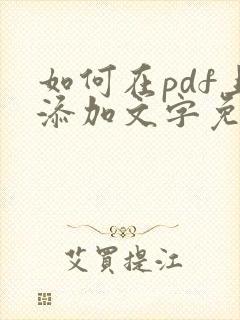 如何在pdf上
添加文字免
艾買提江